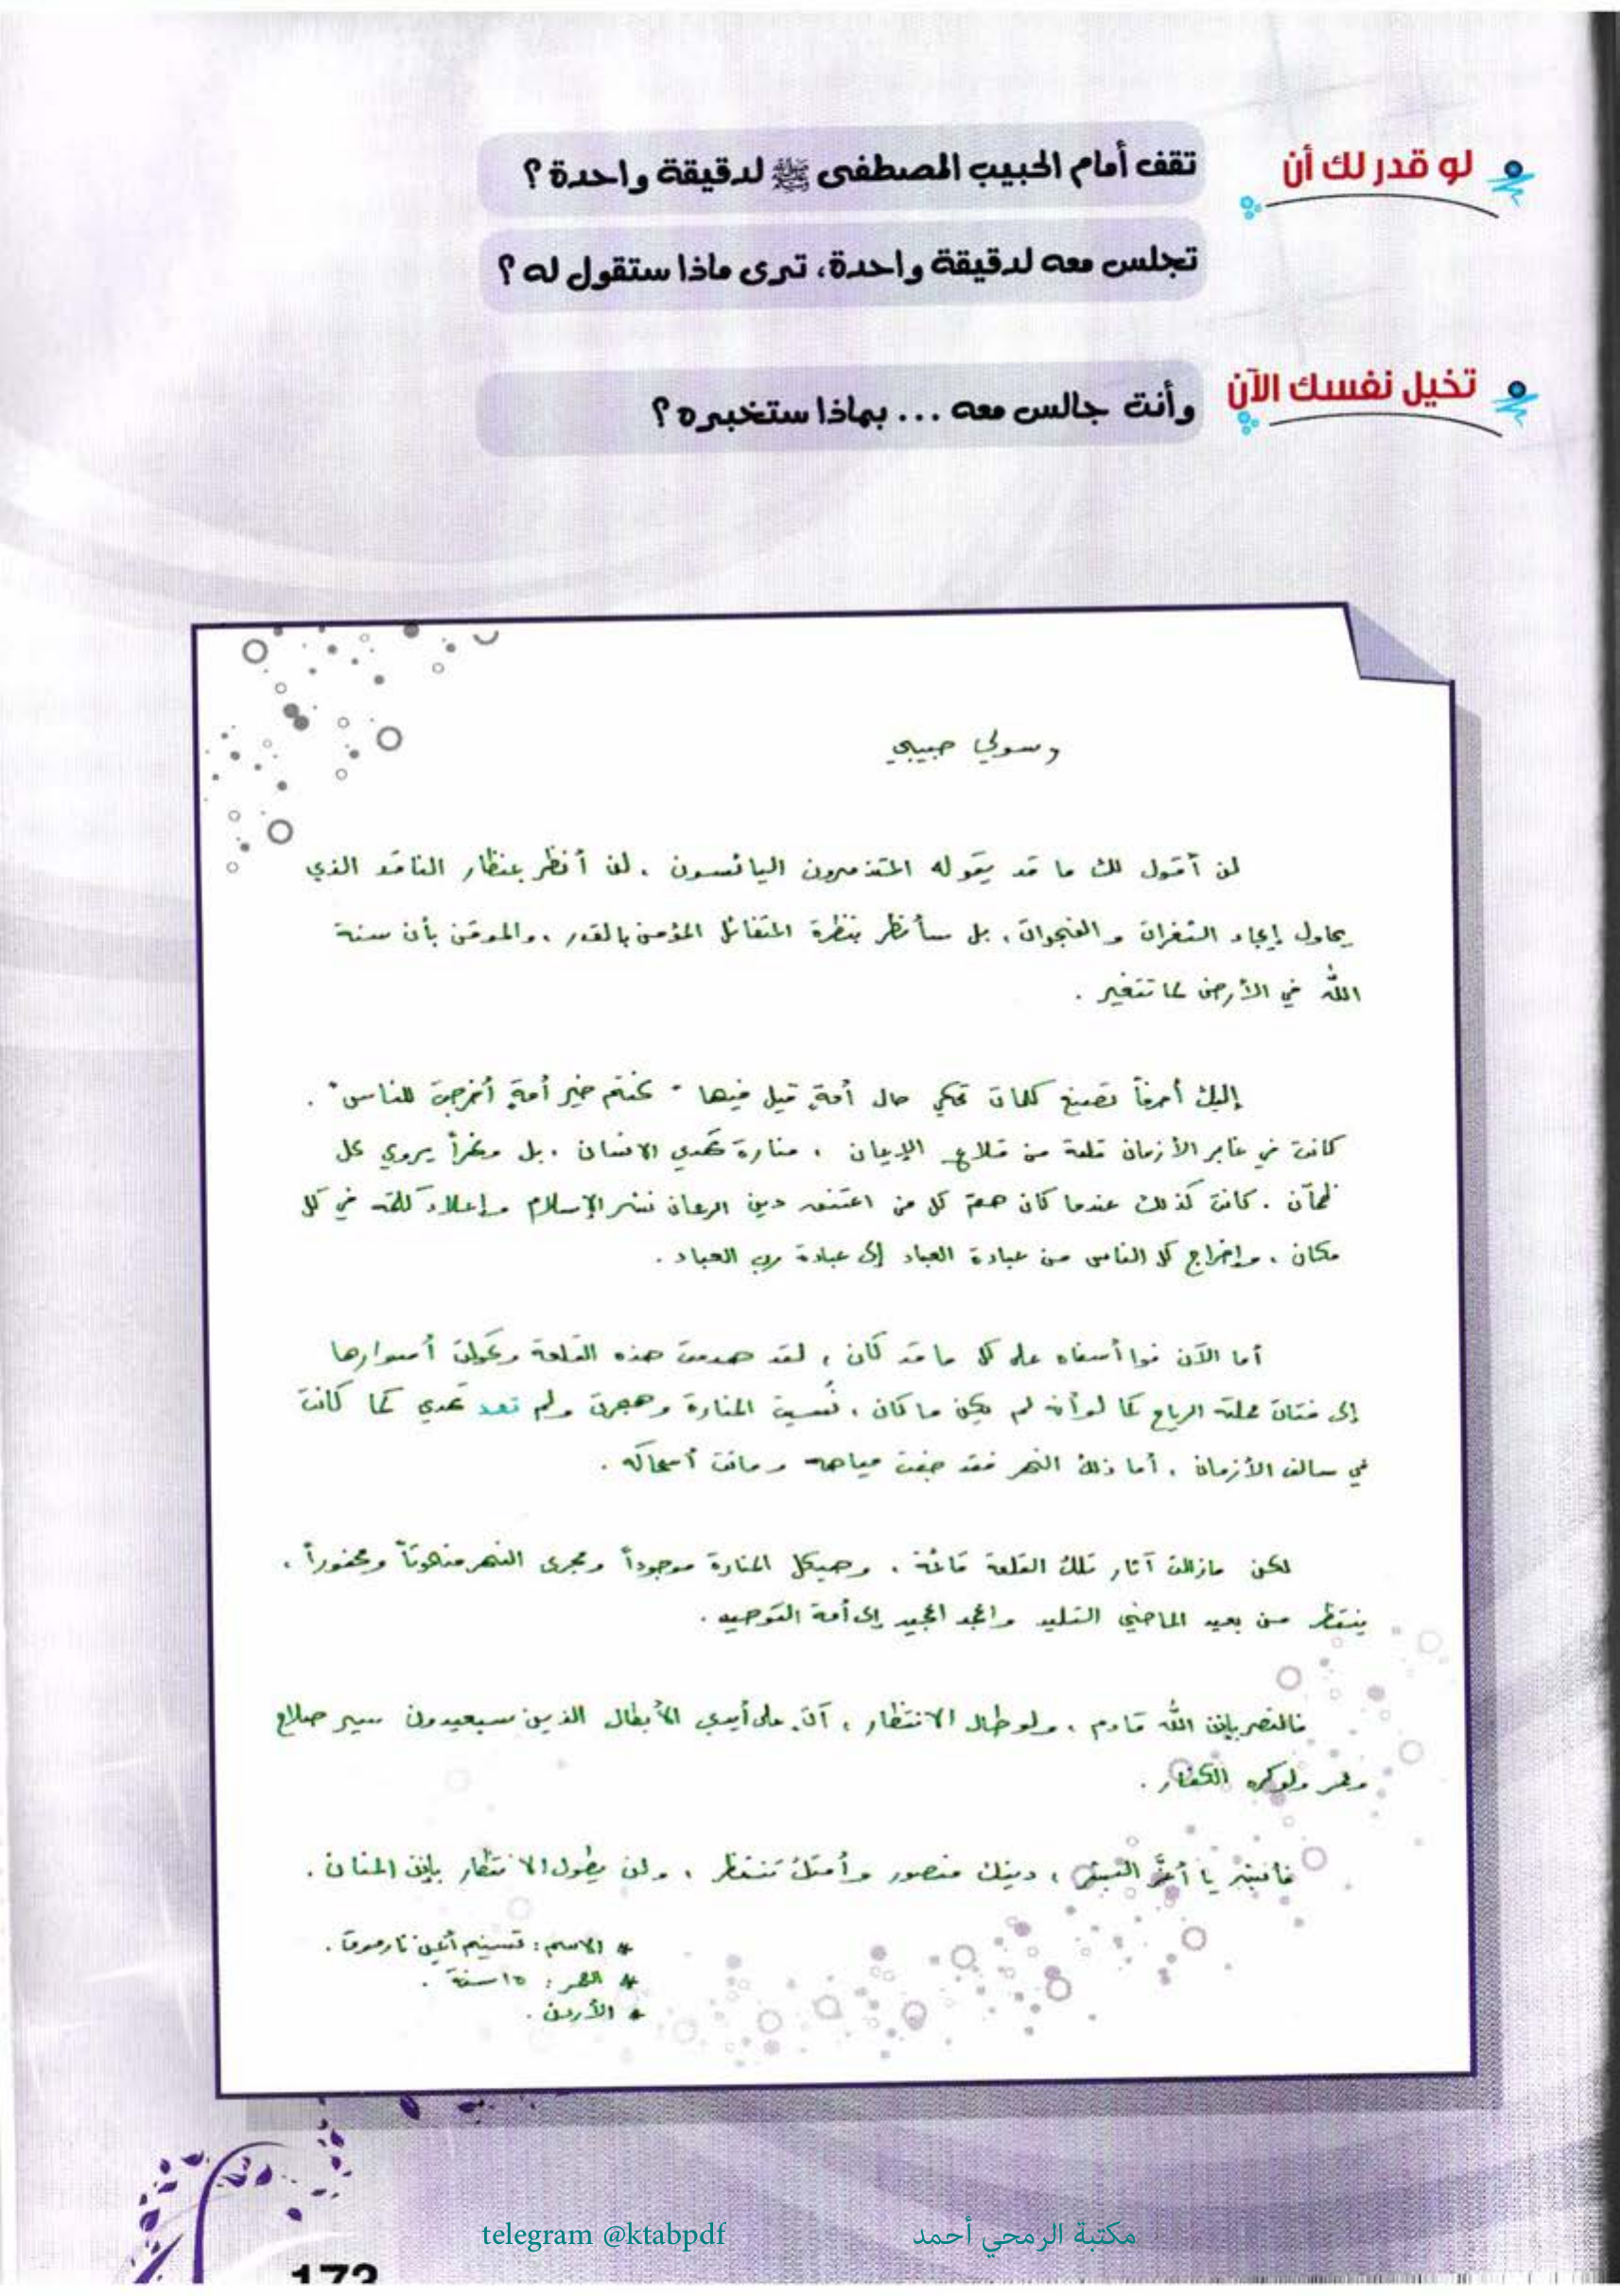 لو قدر لك أن
تقف أمام الحبيب المصطفى ﷺ لدقيقة واحدة ؟
تجلس معه لدقيقة واحدة، ترى ماذا ستقول له ؟
تخيل نفسك الآن
وأنت جالس معه ... بماذا ستخبره ؟
رسولي حبيبي
لن أقول لك ما قد يقوله المتذمرون اليائسون ، لن أنظر بمنظار الناقد الذي
يحاول إيجاد الثغرات و الفجوات ، بل سأنظر بنظرة المتفائل المؤمن بالقدر ، والموقن بأن سنة
الله في الأرض لما تتغير .
إليك أحرفاً تصيغ كلمات تحكي حال أمةٍ قيل فيها " كنتم خير أمةٍ أخرجت للناس " .
كانت في غابر الأزمان قلعة من قلاع الإيمان ، منارة تهدي الانسان ، بل ونهراً يروي كل
ظمآن . كانت كذلك عندما كان همّ كل من اعتنق دين الرحمان نشر الإسلام وإعلاء كلمته في كل
مكان ، وإخراج كل الناس من عبادة العباد إلى عبادة رب العباد .
أما الآن فوا أسفاه على كل ما قد كان ، لقد هدمت هذه القلعة وتحولت أسوارها
إلى فتات حملته الرياح كما لو أنه لم يكن ما كان ، نُسيت المنارة وهجرت ولم تعد تهدي كما كانت
في سالف الأزمان ، أما ذلك النهر فقد جفت مياهه وماتت أسماكه .
لكن مازالت آثار تلك القلعة قائمة ، وهيكل المنارة موجوداً ومجرى النهر منحوتاً ومحفوراً ،
ينتظر من يعيد الماضي التليد والمجد المجيد إلى أمة التوحيد .
فالنصر بإذن الله قادم ، ولو طال الانتظار ، آتٍ على أيدي الأبطال الذين سيعيدون سير صلاح
وعمر ولو كره الكفار .
يا أعزَّ البشر ، دينك منصور وأمتك تنتظر ، ولن يطول الانتظار بإذن المنان .
* الاسم : تسنيم أيمن .
* العمر : ١٥ سنة .
* الأردن .
telegram @ktabpdf
مكتبة الرمحي أحمد